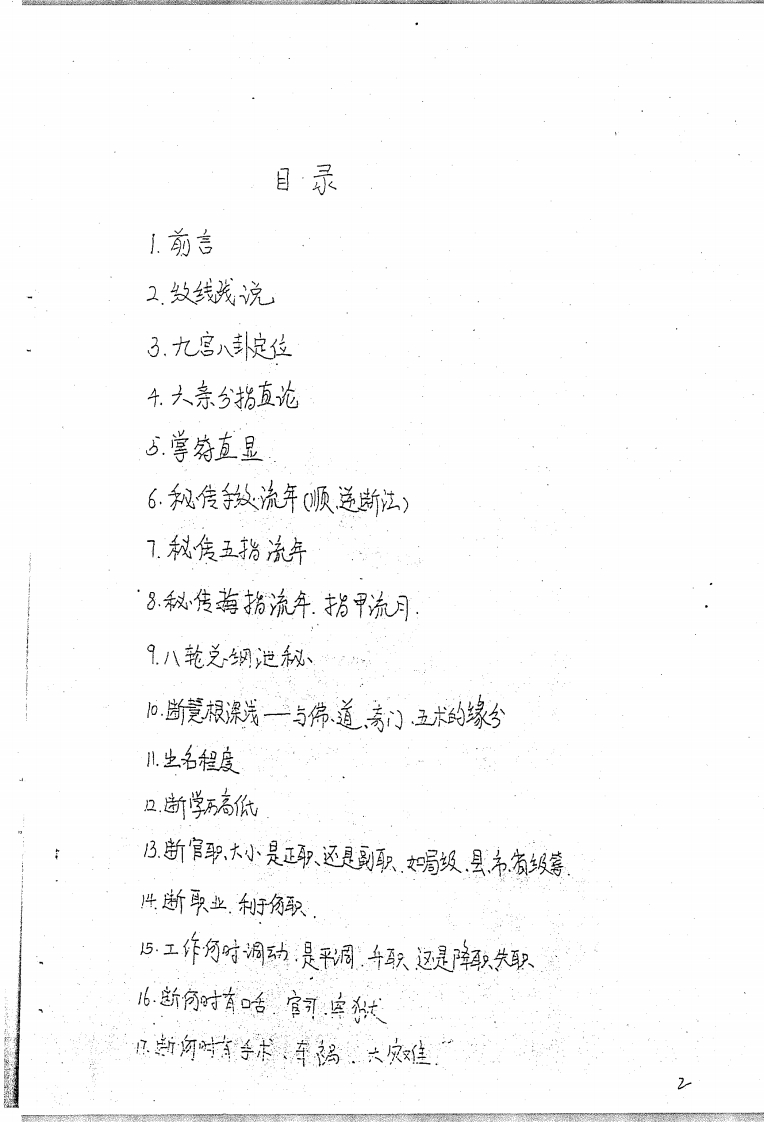 目录
1.前言
2.纹线浅说
3.九宫八卦定位
4.六亲分指直论
5.掌符直显
6.秘传手纹流年(顺、逆断法)
7.秘传五指流年
8.秘传每指流年.指甲流月.
9.八轮总纲泄秘
10.断慧根深浅——与佛、道、奇门、五术的缘分
11.出名程度
12.断学历高低
13.断官职、大小是正职、还是副职、如局级、县、市、省级等.
14.断职业、利于何职.
15.工作何时调动、是平调、升职、还是降职失职
16.断何时有口舌、官司、牢狱
17.断何时有手术、车祸、大灾难.
2